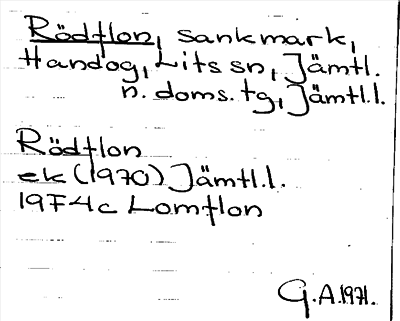 Rödflon, sankmark,
Handog, Lits sn, Jämtl.
n. doms. tg, Jämtl.l.
Rödflon
ek (1970) Jämtl.l.
19F4c Lomflon
G.A.1971.